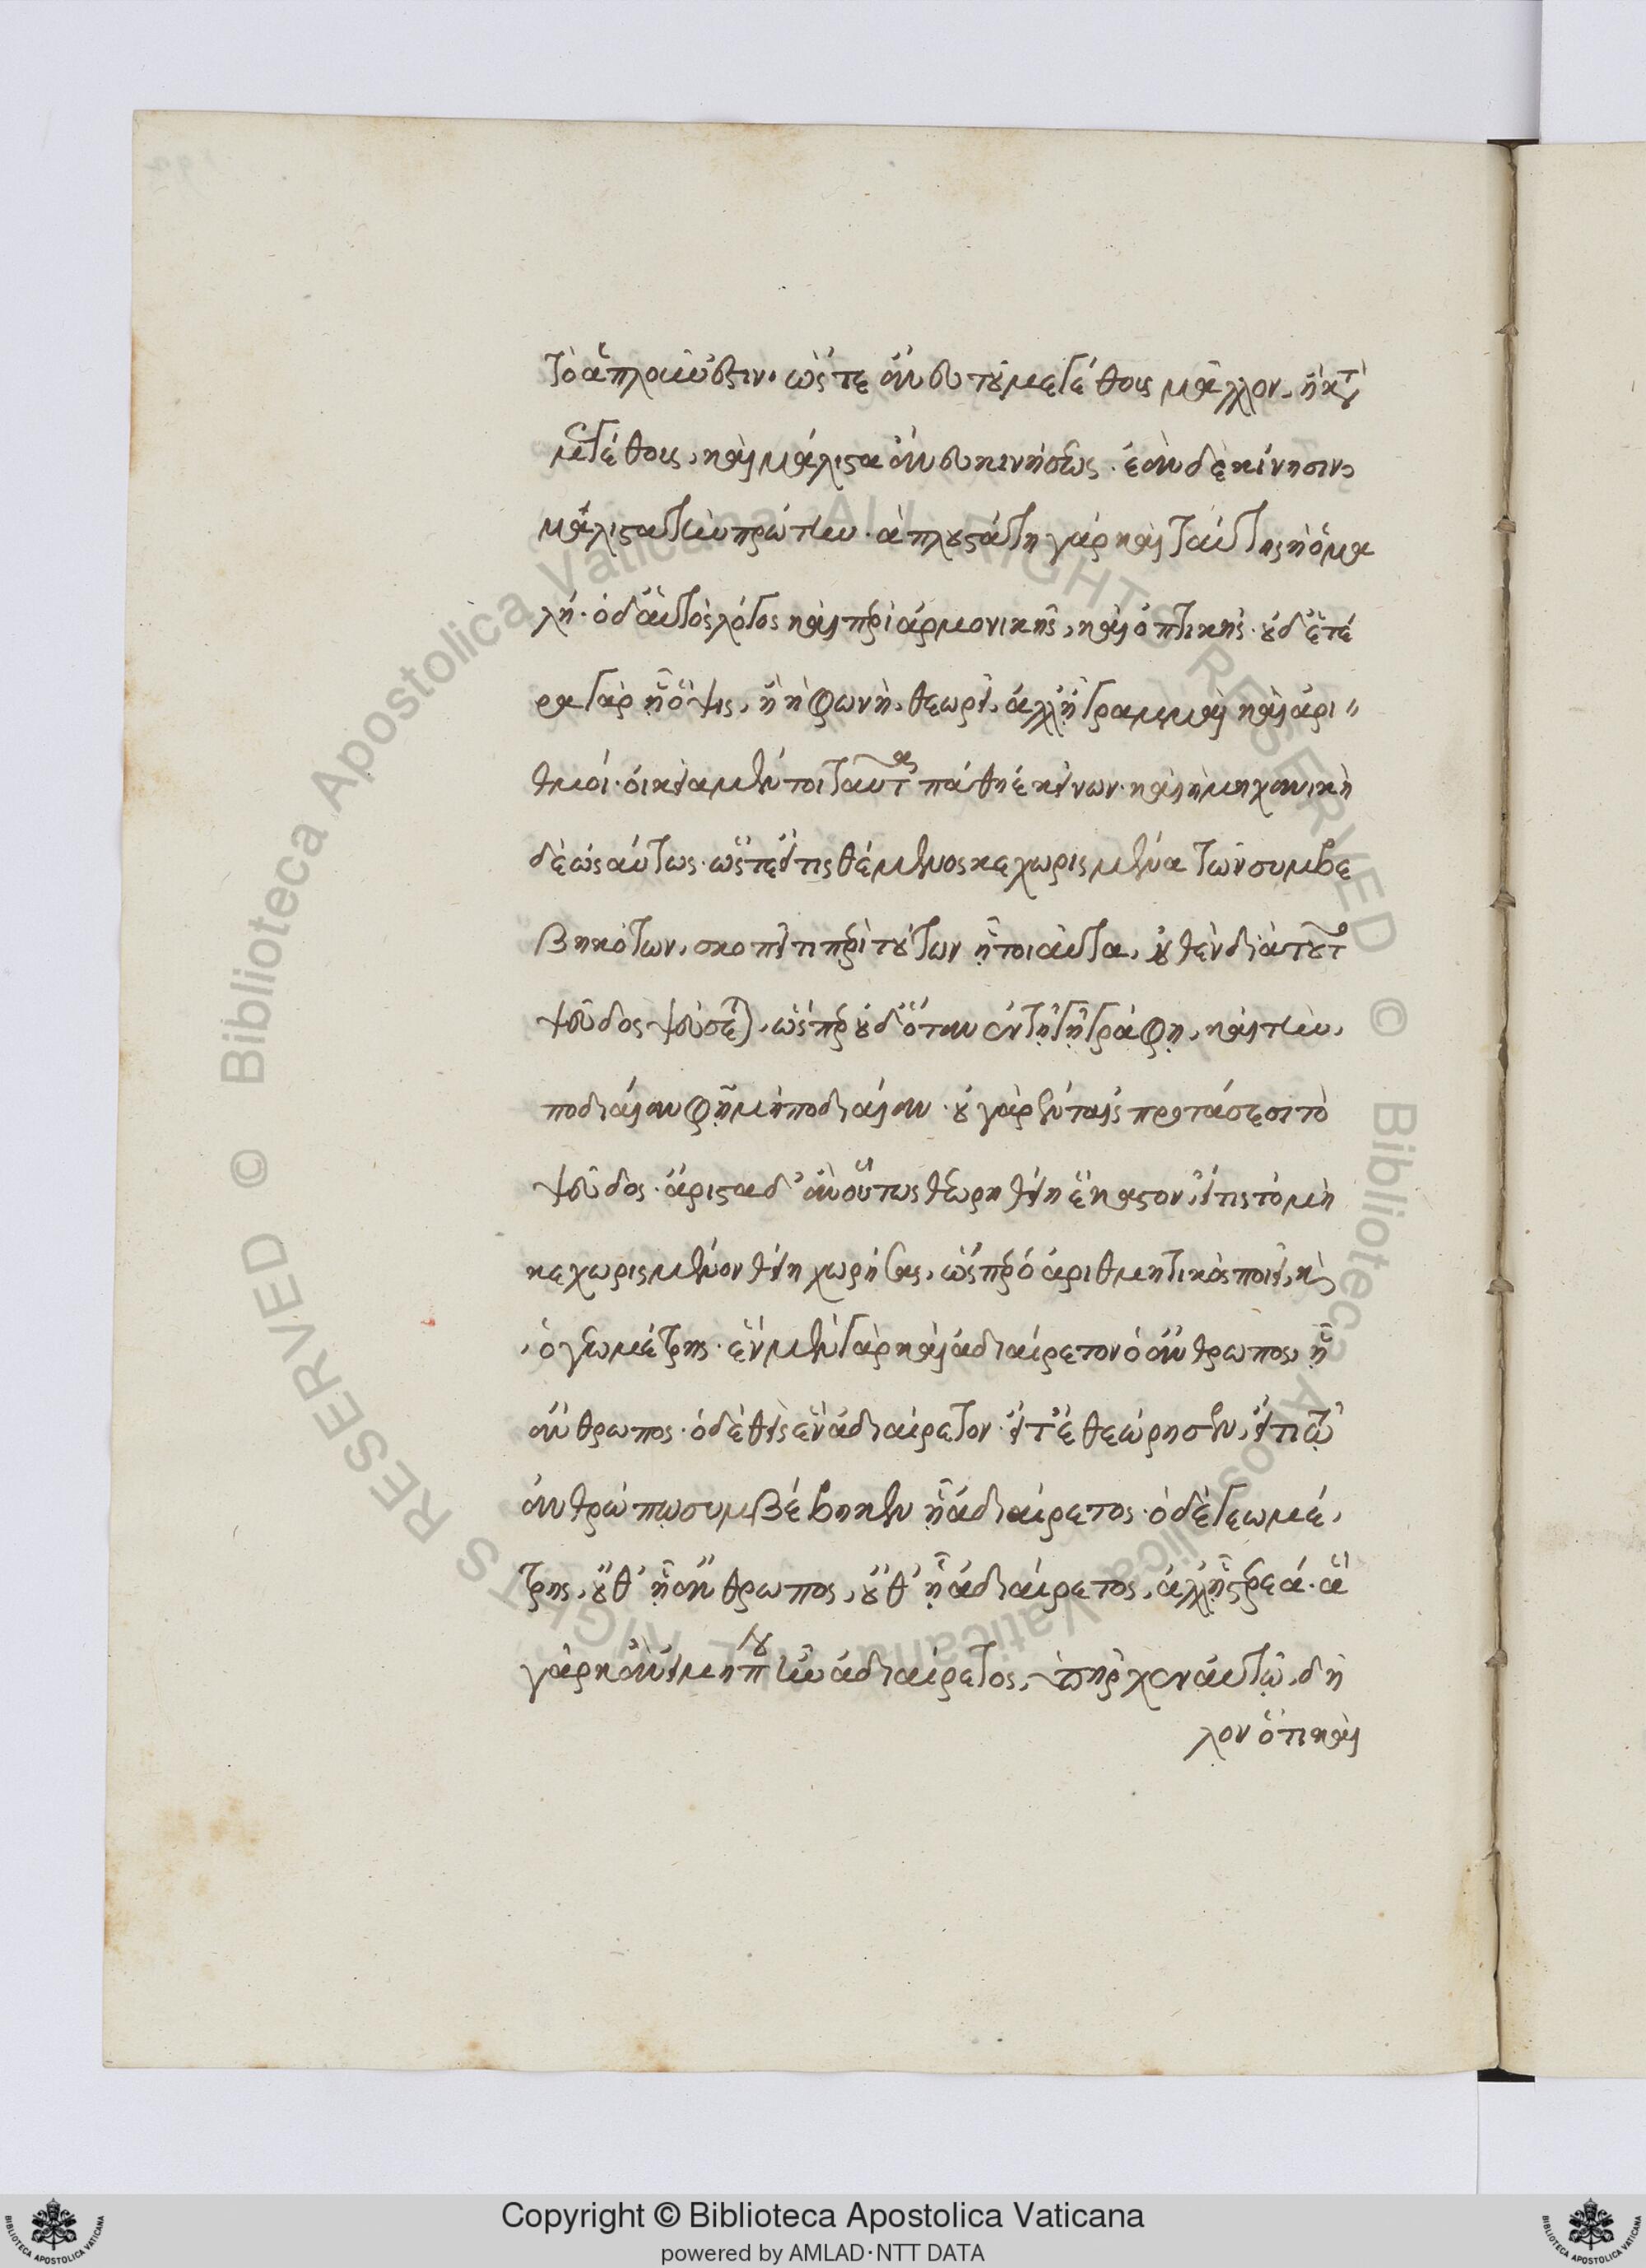 τὸ ἁπλοῦν ἐστιν. ὥστε ἄνευ τοῦ μεγέθους μᾶλλον, ἢ μετὰ
μεγέθους, καὶ μάλιστα ἄνευ κινήσεως. ἐὰν δὲ κίνησιν,
μάλιστα τὴν πρώτην. ἁπλουστάτη γὰρ καὶ ταύτης ἡ ὁμα
λή. ὁ δ' αὐτὸς λόγος καὶ περὶ ἁρμονικῆς, καὶ ὀπτικῆς. οὐδετέ
ρα γὰρ ᾗ ὄψις, ἢ ᾗ φωνὴ, θεωρεῖ, ἀλλ' ᾗ γραμμαὶ καὶ ἀρι
θμοί. οἰκεῖα μέντοι ταῦτα πάθη ἐκείνων. καὶ ἡ μηχανικὴ
δὲ ὡσαύτως. ὥστ' εἴ τις θέμενος κεχωρισμένα τῶν συμβε
βηκότων, σκοπεῖ τι περὶ τούτων ᾗ τοιαῦτα, οὐθὲν διὰ τοῦτο
ψεῦδος ψεύσεται, ὥσπερ οὐδ' ὅταν ἐν τῇ γῇ γράφῃ, καὶ τὴν
ποδιαίαν φῇ μὴ ποδιαίαν. οὐ γὰρ ἐν ταῖς προτάσεσι τὸ
ψεῦδος. ἄριστα δ' ἂν οὕτως θεωρηθείη ἕκαστον, εἴ τις τὸ μὴ
κεχωρισμένον θείη χωρίσας, ὥσπερ ὁ ἀριθμητικὸς ποιεῖ, καὶ
ὁ γεωμέτρης. ἓν μὲν γὰρ καὶ ἀδιαίρετον ὁ ἄνθρωπος, ᾗ
ἄνθρωπος. ὁ δὲ θεὶς ἓν ἀδιαίρετον εἶτ' ἐθεώρησεν, εἴ τι τῷ
ἀνθρώπῳ συμβέβηκεν ᾗ ἀδιαίρετος. ὁ δὲ γεωμέ
τρης, οὔθ' ᾗ ἄνθρωπος, οὔθ' ᾗ ἀδιαίρετος, ἀλλ' ᾗ στερεά. ἃ
γὰρ κἂν εἰ μή που ἦν ἀδιαίρετος, ὑπῆρχεν αὐτῷ, δῆ
λον ὅτι καὶ
Copyright © Biblioteca Apostolica Vaticana
powered by AMLAD·NTT DATA